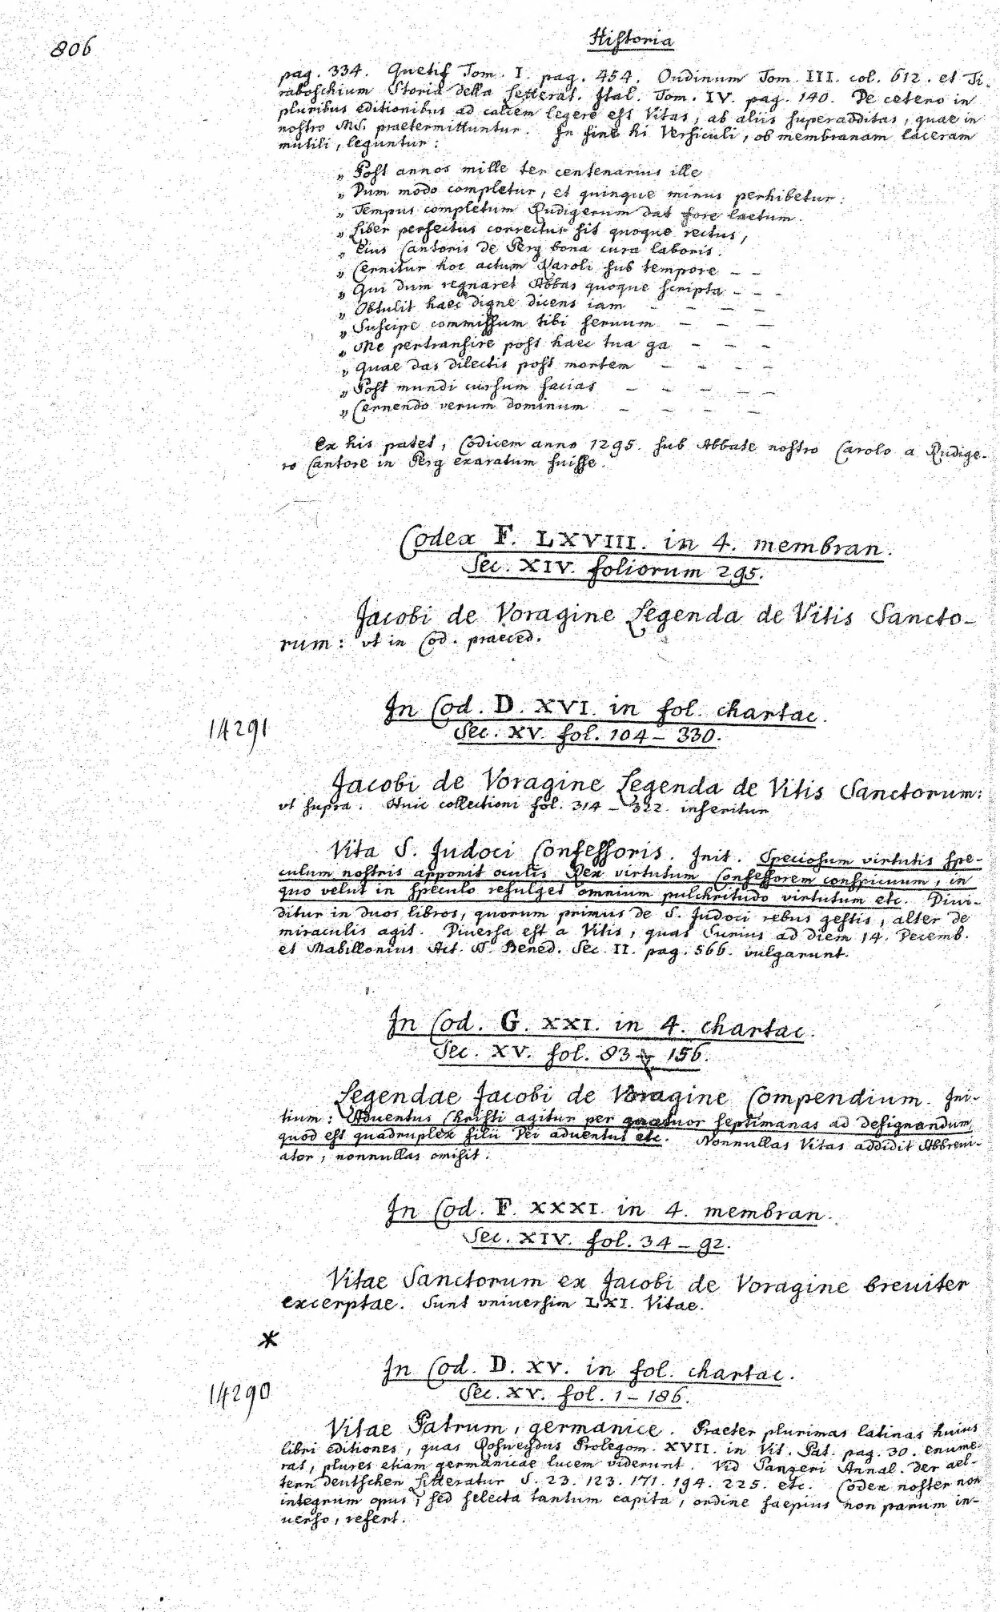 806
Historia
pag. 334. Quetif Tom. I. pag. 454. Oudinum Tom. III. col. 612. et Ti-
raboschium Storia della Letterat. Ital. Tom. IV. pag. 140. De cetero in
pluribus editionibus ad calcem legere est Vitas, ab aliis superadditas, quae in
nostro MS. praetermittuntur. In fine hi Versiculi, ob membranam laceram
mutili, leguntur:
„ Post annos mille ter centenarius ille
„ Dum modo completur, et quinque minus perhibetur:
„ Tempus completum Rudigerum dat fore laetum.
„ Liber perfectus correctus sit quoque rectus,
„ Eius Cantoris de Perg bona cura laboris.
„ Cernitur hoc actum Karoli sub tempore – –
„ Qui dum regnaret Abbas quoque scripta – – –
„ Obtulit haec digne dicens iam – – – –
„ Suscipe commissum tibi seruum – – –
„ Me pertransire post haec tua ga – – –
„ Quae das dilectis post mortem – – – –
„ Post mundi cursum facias – – – – –
„ Cernendo verum dominum – – – –
Ex his patet, Codicem anno 1295. sub Abbate nostro Carolo a Rudige-
ro Cantore in Perg exaratum fuisse.
Codex F. LXVIII. in 4. membran.
Sec. XIV. foliorum 295.
Jacobi de Voragine Legenda de Vitis Sancto-
rum: vt in Cod. praeced.
14291
In Cod. D. XVI. in fol. chartac.
Sec. XV. fol. 104 – 330.
Jacobi de Voragine Legenda de Vitis Sanctorum:
vt supra. Huic collectioni fol. 314 – 322. inseritur
Vita S. Judoci Confessoris. Init. Speciosum virtutis spe-
culum nostris apponit oculis Rex virtutum Confessorem conspicuum, in
quo velut in speculo resulget omnium pulchritudo virtutum etc. Diui-
ditur in duos libros, quorum primus de S. Judoci rebus gestis, alter de
miraculis agit. Diuersa est a Vitis, quas Surius ad diem 14. Decemb.
et Mabillonius Act. SS. Bened. Sec. II. pag. 566. vulgarunt.
In Cod. G. XXI. in 4. chartac.
Sec. XV. fol. 83 – 156.
Legendae Jacobi de Voragine Compendium. Ini-
tium: Aduentus Christi agitur per quatuor septimanas ad designandum,
quod est quadruplex filii Dei aduentus etc. Nonnullas Vitas addidit Abbreui-
ator, nonnullas omisit.
In Cod. F. XXXI. in 4. membran.
Sec. XIV. fol. 34 – 92.
Vitae Sanctorum ex Jacobi de Voragine breuiter
excerptae. Sunt vniuersim LXI. Vitae.
*
14290
In Cod. D. XV. in fol. chartac.
Sec. XV. fol. 1 – 186.
Vitae Patrum, germanice. Praeter plurimas latinas huius
libri editiones, quas Rosweydus Prolegom. XVII. in Vit. Pat. pag. 30. enume-
rat, plures etiam germanicae lucem viderunt. Vid Panzeri Annal. der ael-
tern deutschen Litteratur S. 23. 123. 171. 194. 225. etc. Codex noster non
integrum opus, sed selecta tantum capita, ordine saepius non parum in-
uerso, refert.